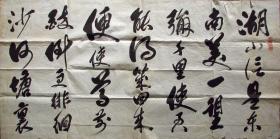 湖山信是東
南美一望
彌千里使君
能得幾回来
便使尊前
醉倒更徘徊
沙河塘裏